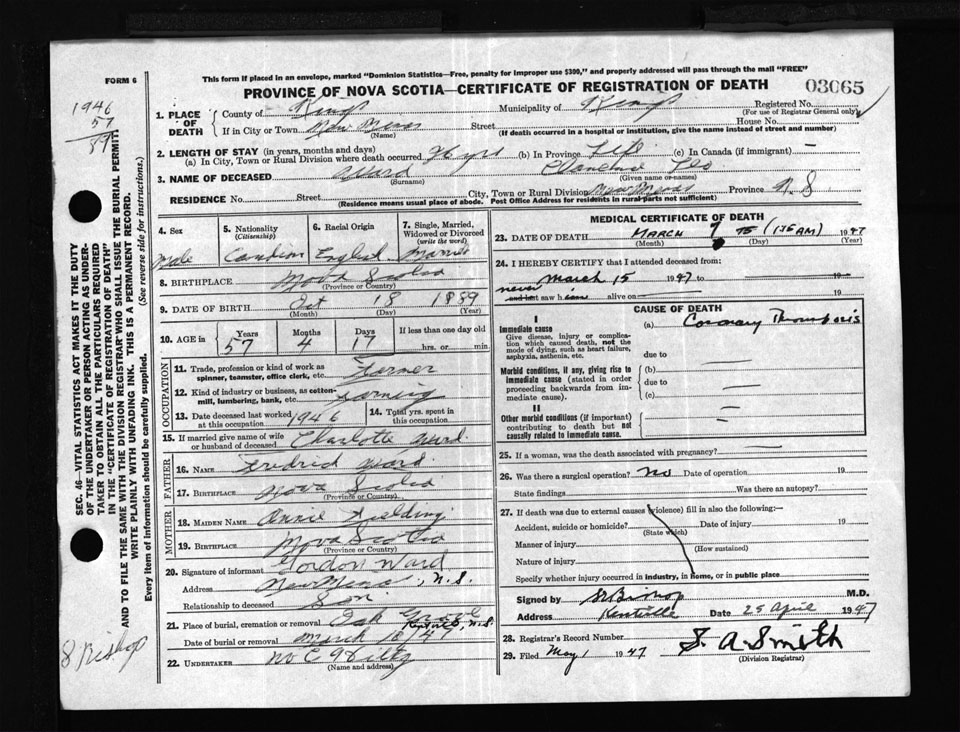 FORM 6
This form if placed in an envelope, marked "Dominion Statistics—Free, penalty for improper use $300," and properly addressed will pass through the mail "FREE"
PROVINCE OF NOVA SCOTIA—CERTIFICATE OF REGISTRATION OF DEATH
03065
1946
57
89
1. PLACE OF DEATH
County of Kings Municipality of Kings Registered No.
(For use of Registrar General only)
If in City or Town New Minas Street House No.
(Name) (If death occurred in a hospital or institution, give the name instead of street and number)
2. LENGTH OF STAY (in years, months and days)
(a) In City, Town or Rural Division where death occurred 26 yrs (b) In Province Life (c) In Canada (if immigrant) —
3. NAME OF DECEASED Ward Leo
(Surname) (Given name or names)
RESIDENCE No. Street City, Town or Rural Division New Minas Province N.S
(Residence means usual place of abode. Post Office Address for residents in rural parts not sufficient)
4. Sex
Male
5. Nationality
(Citizenship)
Canadian
6. Racial Origin
English
7. Single, Married, Widowed or Divorced
(write the word)
Married
8. BIRTHPLACE Nova Scotia
(Province or Country)
9. DATE OF BIRTH Oct 18 1889
(Month) (Day) (Year)
10. AGE in
Years Months Days If less than one day old
57 4 17 hrs. or min.
OCCUPATION
11. Trade, profession or kind of work as spinner, teamster, office clerk, etc. Farmer
12. Kind of industry or business, as cotton-mill, lumbering, bank, etc. Farming
13. Date deceased last worked at this occupation 1946
14. Total yrs. spent in this occupation
15. If married give name of wife or husband of deceased Charlotte Ward.
FATHER
16. NAME Fredrid Ward.
17. BIRTHPLACE Nova Scotia
(Province or Country)
MOTHER
18. MAIDEN NAME Annie Fielding
19. BIRTHPLACE Nova Scotia
(Province or Country)
20. Signature of informant Gordon Ward
Address New Minas, N.S.
Relationship to deceased Son
21. Place of burial, cremation or removal Oak Grove
Kentville, N.S.
Date of burial or removal March /47
22. UNDERTAKER
(Name and address)
MEDICAL CERTIFICATE OF DEATH
23. DATE OF DEATH MARCH (1:15 AM) 1947
(Month) (Day) (Year)
24. I HEREBY CERTIFY that I attended deceased from:
March 15 1947 to 19
never
and last saw h alive on 19
CAUSE OF DEATH
I
Immediate cause
Give disease, injury or complication which caused death, not the mode of dying, such as heart failure, asphyxia, asthenia, etc.
(a) Coronary Thrombosis
due to
Morbid conditions, if any, giving rise to immediate cause (stated in order proceeding backwards from immediate cause).
(b)
due to
(c)
II
Other morbid conditions (if important) contributing to death but not causally related to immediate cause.
25. If a woman, was the death associated with pregnancy?
26. Was there a surgical operation? No Date of operation 19
State findings Was there an autopsy?
27. If death was due to external causes (violence) fill in also the following:—
Accident, suicide or homicide? Date of injury 19
(State which)
Manner of injury
(How sustained)
Nature of injury
Specify whether injury occurred in industry, in home, or in public place
Signed by Bishop M.D.
Address Kentville Date 25 April 1947
28. Registrar's Record Number
29. Filed May 1 1947 S. A. Smith
(Division Registrar)
SEC. 46—VITAL STATISTICS ACT MAKES IT THE DUTY
OF THE UNDERTAKER OR PERSON ACTING AS UNDER-
TAKER TO OBTAIN ALL THE PARTICULARS REQUIRED
IN THE "CERTIFICATE OF REGISTRATION OF DEATH"
AND TO FILE THE SAME WITH THE DIVISION REGISTRAR WHO SHALL ISSUE THE BURIAL PERMIT.
WRITE PLAINLY WITH UNFADING INK. THIS IS A PERMANENT RECORD.
Every item of information should be carefully supplied.
(See reverse side for instructions.)
S Bishop